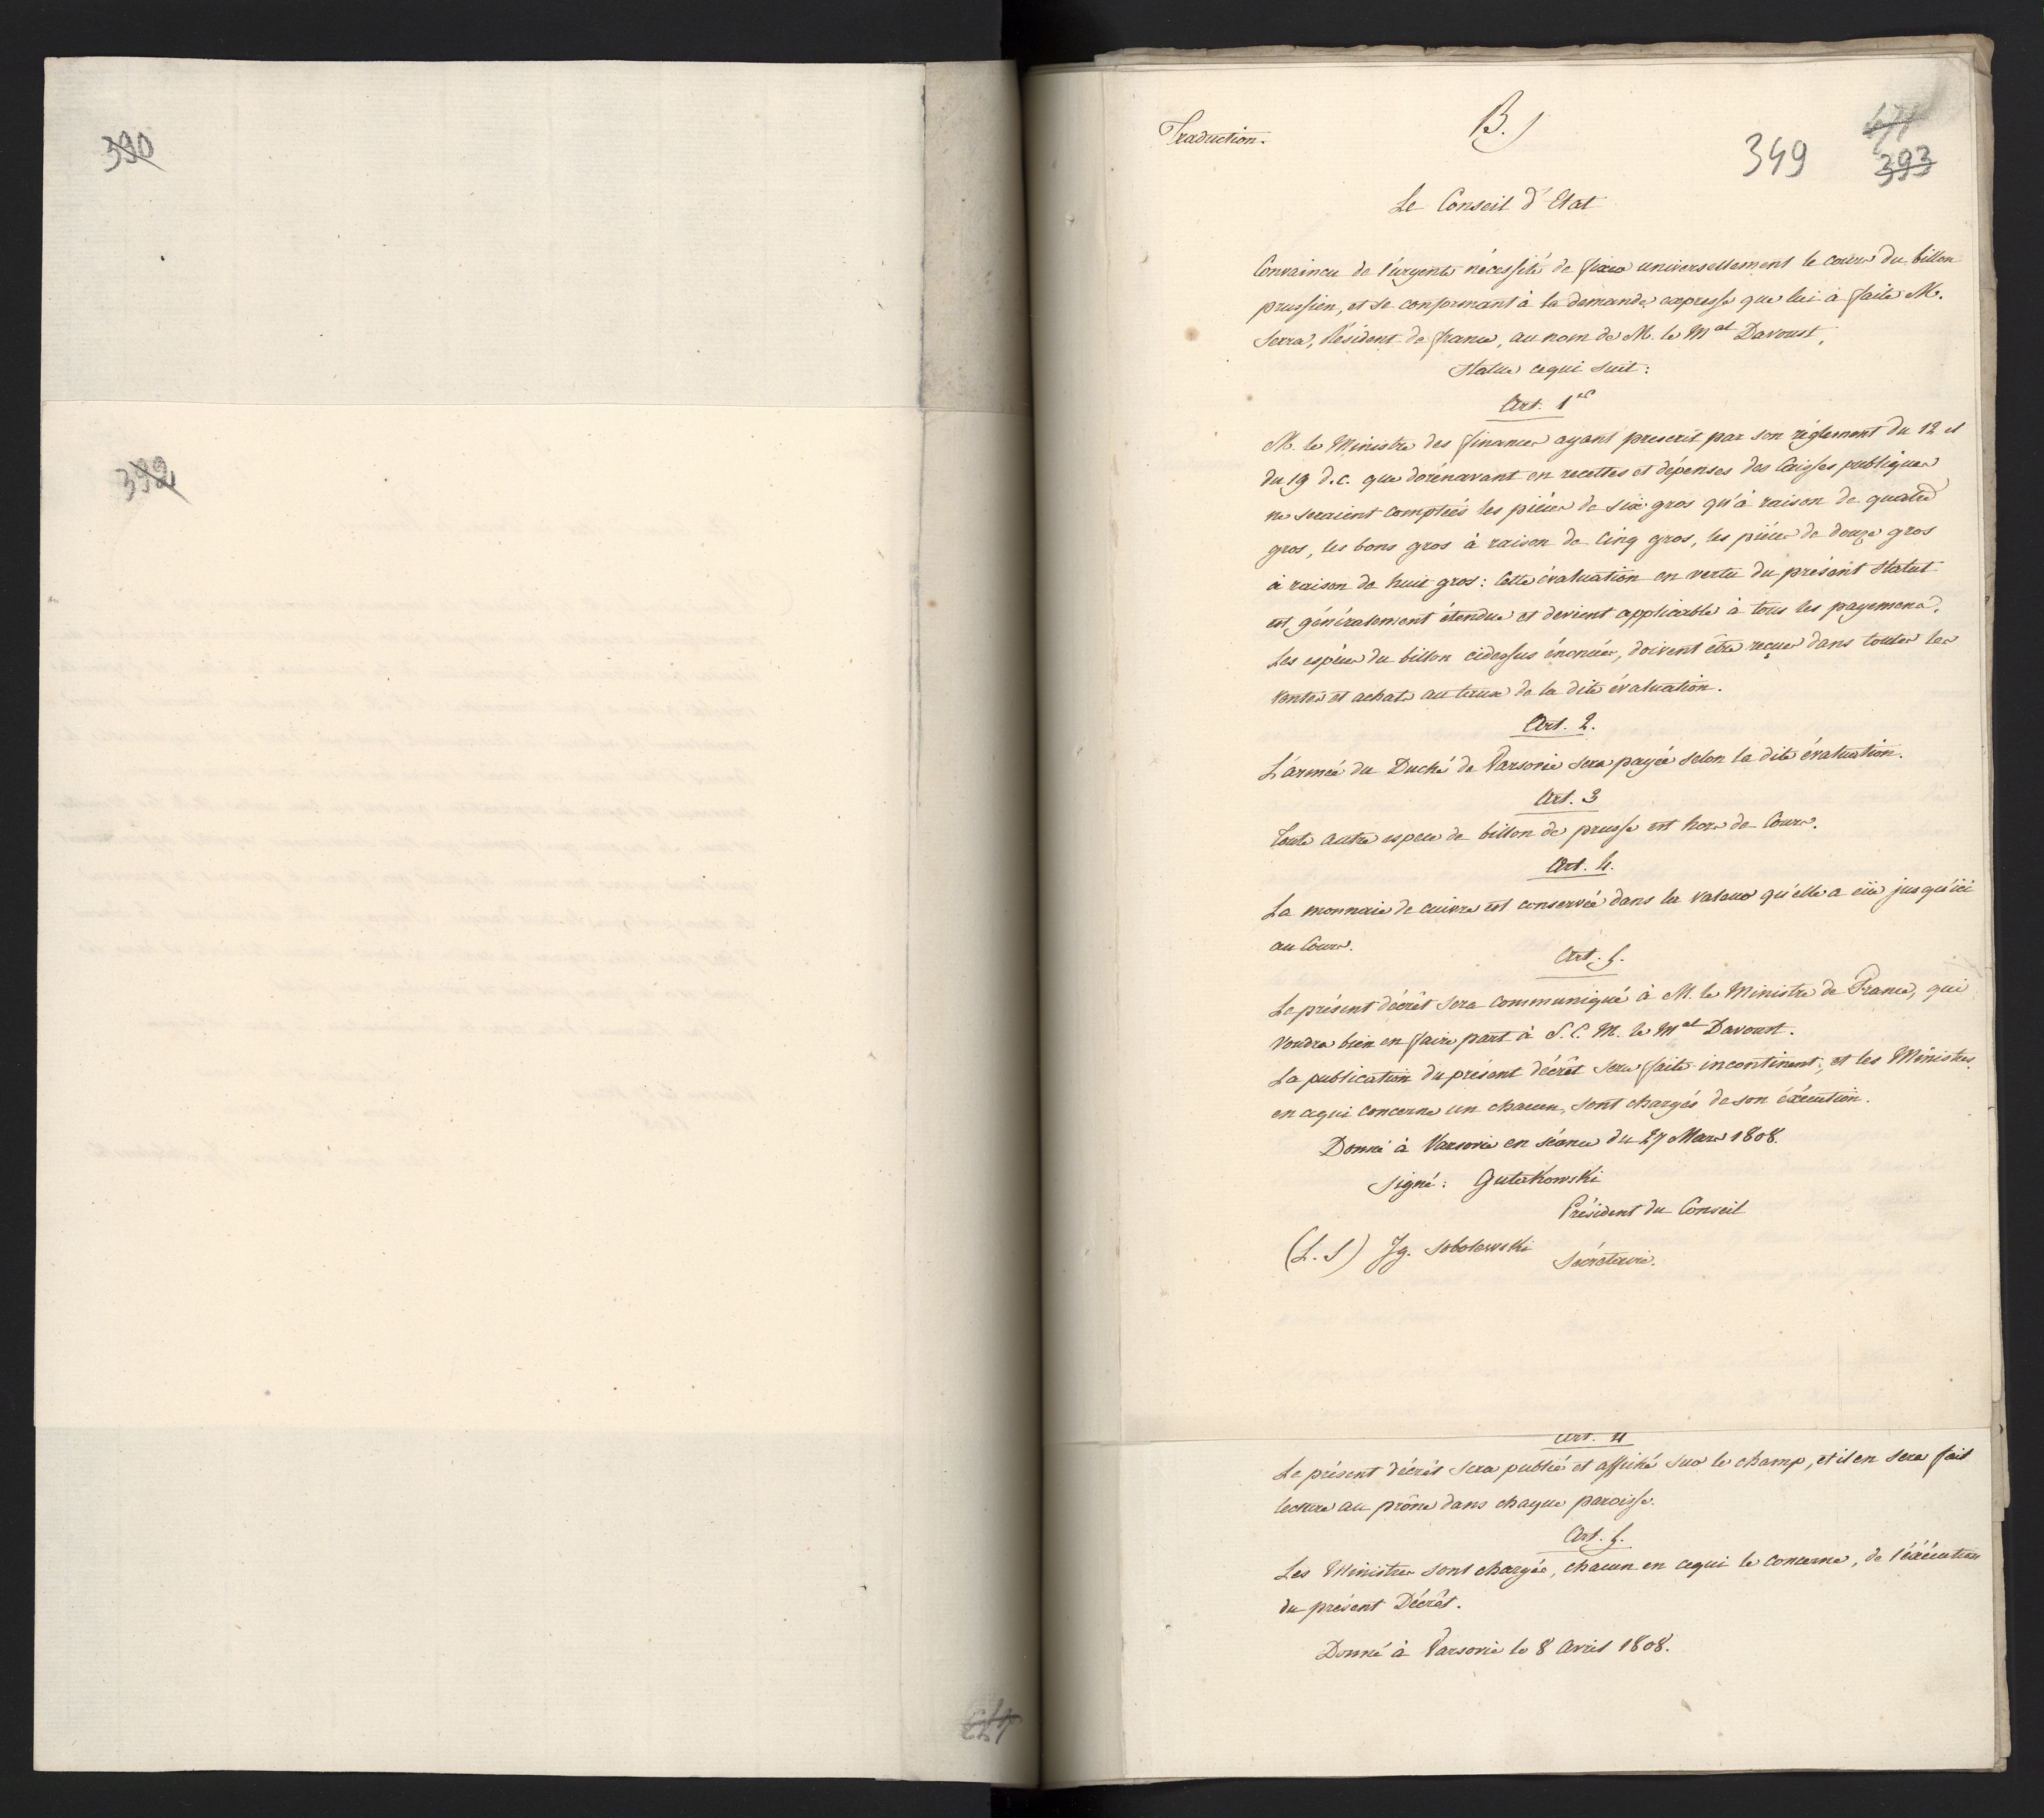 390
392
Traduction.
B.)
349
471
393
Le Conseil d'Etat
Convaincu de l'urgente nécessité de fixer universellement le cours du billon
prussien, et se conformant à la demande expresse que lui a faite M.
Serra, Résident de france, au nom de M. le Mal Davoust,
Statue cequi suit:
Art. 1er
M. le Ministre des finances ayant prescrit par son réglement du 12 et
du 19 d.c. que dorénavant en recettes et dépenses des Caisses publiques
ne seraient comptées les pièces de six gros qu'à raison de quatre
gros, les bons gros à raison de Cinq gros, les pièces de douze gros
à raison de huit gros: Cette évaluation en vertu du présent Statut
est généralement étendue et devient applicable à tous les payemens.
Les espèces du billon cidessus énoncées, doivent être reçues dans toutes les
ventes et achats au taux de la dite évaluation.
Art. 2.
L'armée du Duché de Varsovie sera payée selon la dite évaluation.
Art. 3
Toute autre espece de billon de prusse est hors de Cours.
Art. 4.
La monnaie de cuivre est conservée dans la valeur qu'elle a eüe jusqu'ici
au Cours.
Art. 5.
Le présent décrêt sera communiqué à M. le Ministre de France, qui
voudra bien en faire part à S.E.M. le Mal Davoust.
La publication du présent décrêt sera faite incontinent; et les Ministres,
en cequi concerne un chacun, sont chargés de son éxécution.
Donné à Varsovie en séance du 27 Mars 1808.
signé: Gutakowski
Président du Conseil
(L.S) Jg. Sobolewski
Sécrétaire.
Art. 4
Le présent décrêt sera publié et affiché sur le champ, et il en sera fait
lecture au prône dans chaque paroisse.
Art. 5.
Les Ministres sont chargés, chacun en cequi le concerne, de l'éxécution
du présent Décrêt.
Donné à Varsovie le 8 Avril 1808.